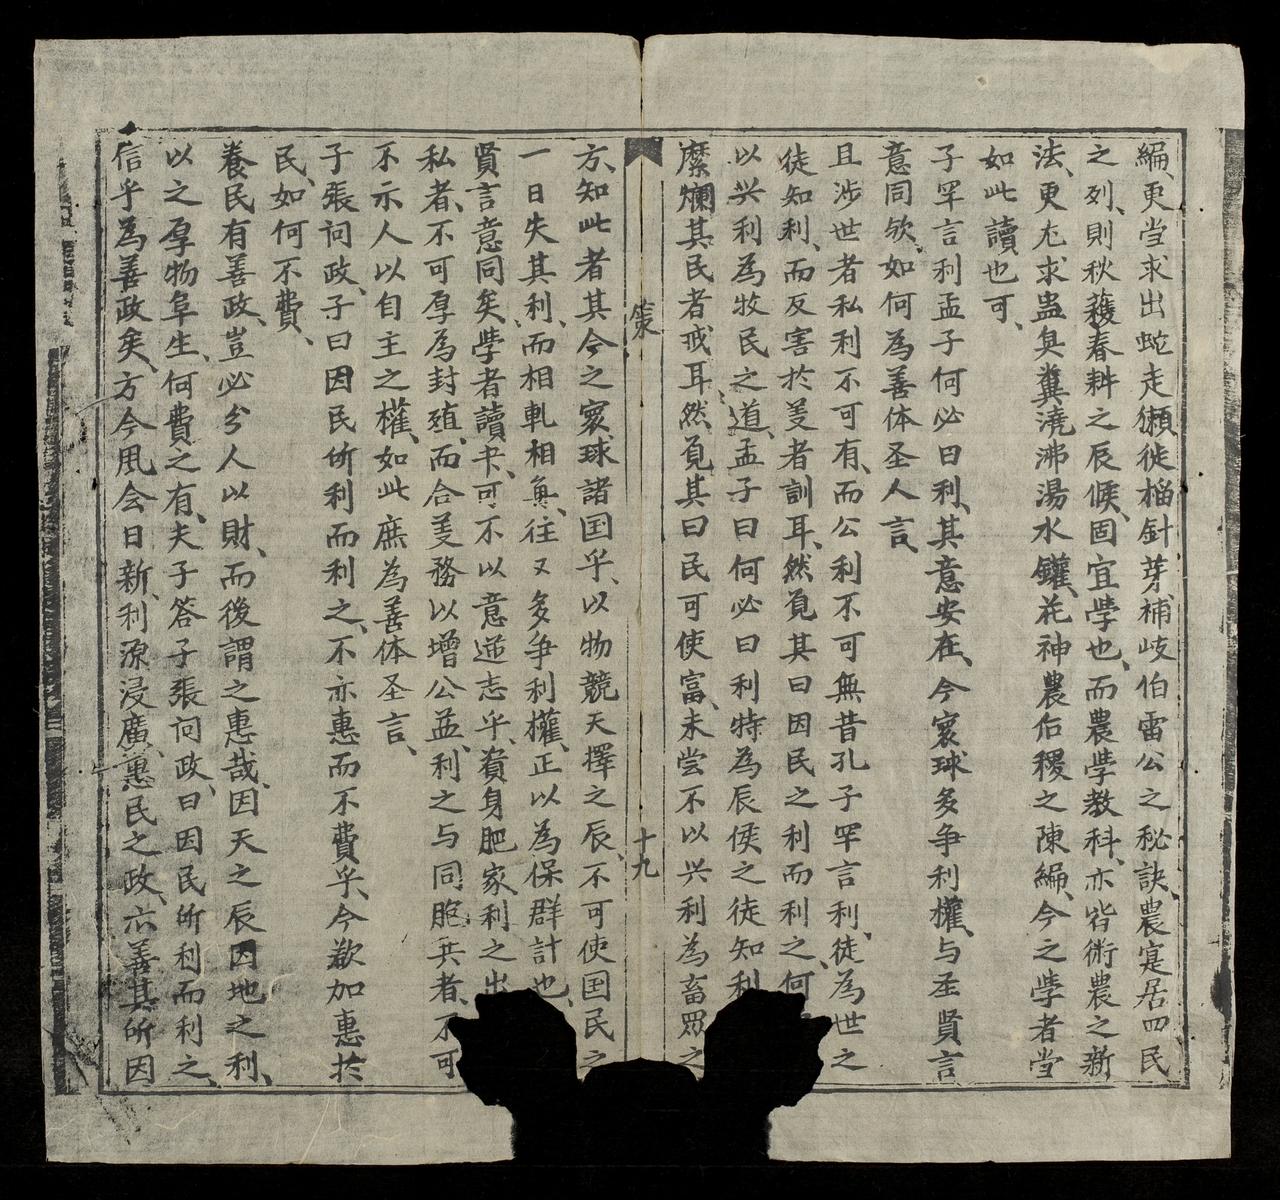 編、更当求出蛇走獺、徙榴針芽、補岐伯雷公之秘訣、農寔居四民
之列、則秋穫春耕之辰候、固宜學也、而農學教科、亦皆術農之新
法、更尤求蛊臭糞澆沸湯水鑵、花神農后稷之陳編、今之學者当
如此讀也可、
子罕言利孟子何必曰利、其意安在、今寰球多争利權、与圣賢言
意同欤、如何為善体圣人言、
且涉世者私利不可有、而公利不可無昔孔子罕言利、徒為世之
徒知利、而反害於義者訓耳、然覔其曰因民之利而利之、何
以兴利為牧民之道、孟子曰何必曰利特為辰侯之徒知利
縻爛其民者戒耳、然覔其曰民可使富、未尝不以兴利為畜眾之
策
十九
方、知此者其今之寰球諸国乎、以物競天擇之辰、不可使国民之
一日失其利、而相軋相奐、往又多争利權、正以為保群計也、
賢言意同矣、學者讀书、可不以意逆志乎、資身肥家利之出
私者、不可厚為封殖、而合義務以增公益、利之与同胞共者、不可
不示人以自主之權、如此庶為善体圣言、
子張问政、子曰因民所利而利之、不亦惠而不費乎、今欲加惠於
民、如何不費、
養民有善政、豈必分人以財、而後謂之惠哉、因天之辰因地之利、
以之厚物阜生、何費之有、夫子答子張问政、曰因民所利而利之、
信乎為善政矣、方今風会日新、利源浸廣、惠民之政、亦善其所因